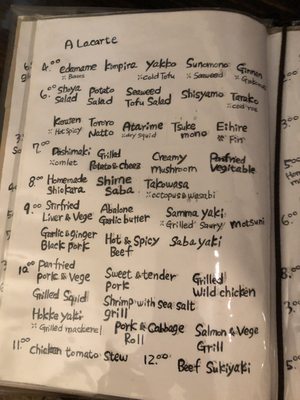 A Lacarte
4.00 edamame Kimpira Yakko Sunomono Ginnan
※Beans ※Cold Tofu ※Seaweed
6.00 Shiya Potato Seaweed Shisyamo Tarako
Salad Salad Tofu Salad ※cod roe
Karasen Tororo Atarime Tsuke Eihire
※Hot Spicy Natto ※dry squid mono ※Fin
7.00 Dashimaki Grilled Creamy Panfried
※omlet Potato & cheez mushroom Vegitable
8.00 Homemade Shime Takowasa
Shiokara Saba ※octopus & wasabi
9.00 Stirfried Abalone Samma yaki
Liver & Vege Garlic butter ※Grilled Saury matsuri
Garlic & ginger Hot & Spicy Saba yaki
Black pork Beef
10.00 Panfried Sweet & tender Grilled
pork & Vege pork Wild chicken
Grilled Squid Shrimp with sea salt
grill
Hokke yaki Pork & Cabbage Salmon & Vege
※Grilled mackerel Roll Grill
11.00 Chicken tomato stew 12.00 Beef Sukiyaki